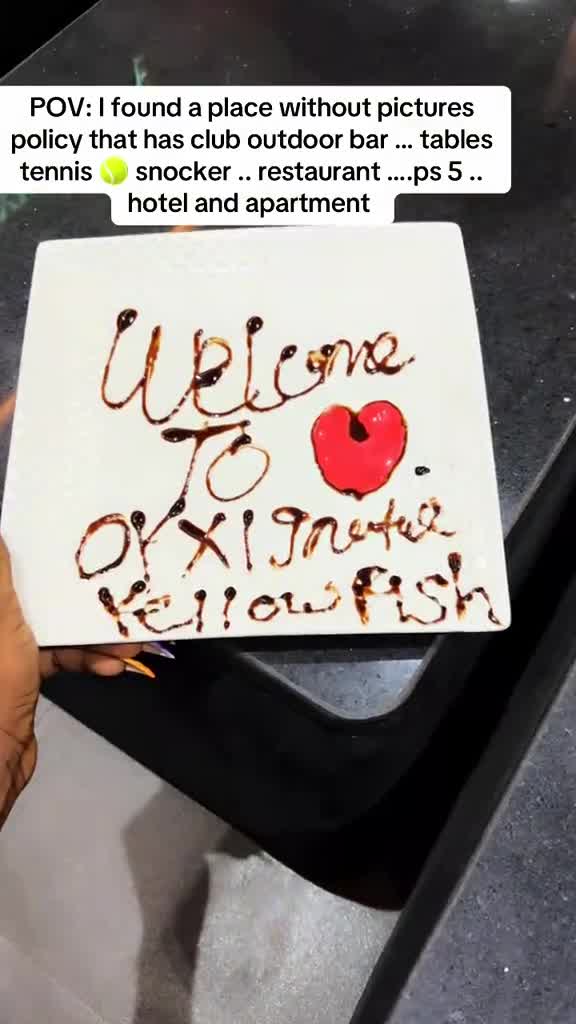 POV: I found a place without pictures
policy that has club outdoor bar ... tables
tennis 🎾 snocker .. restaurant ....ps 5 ..
hotel and apartment
Welcome
To
Yellow Fish